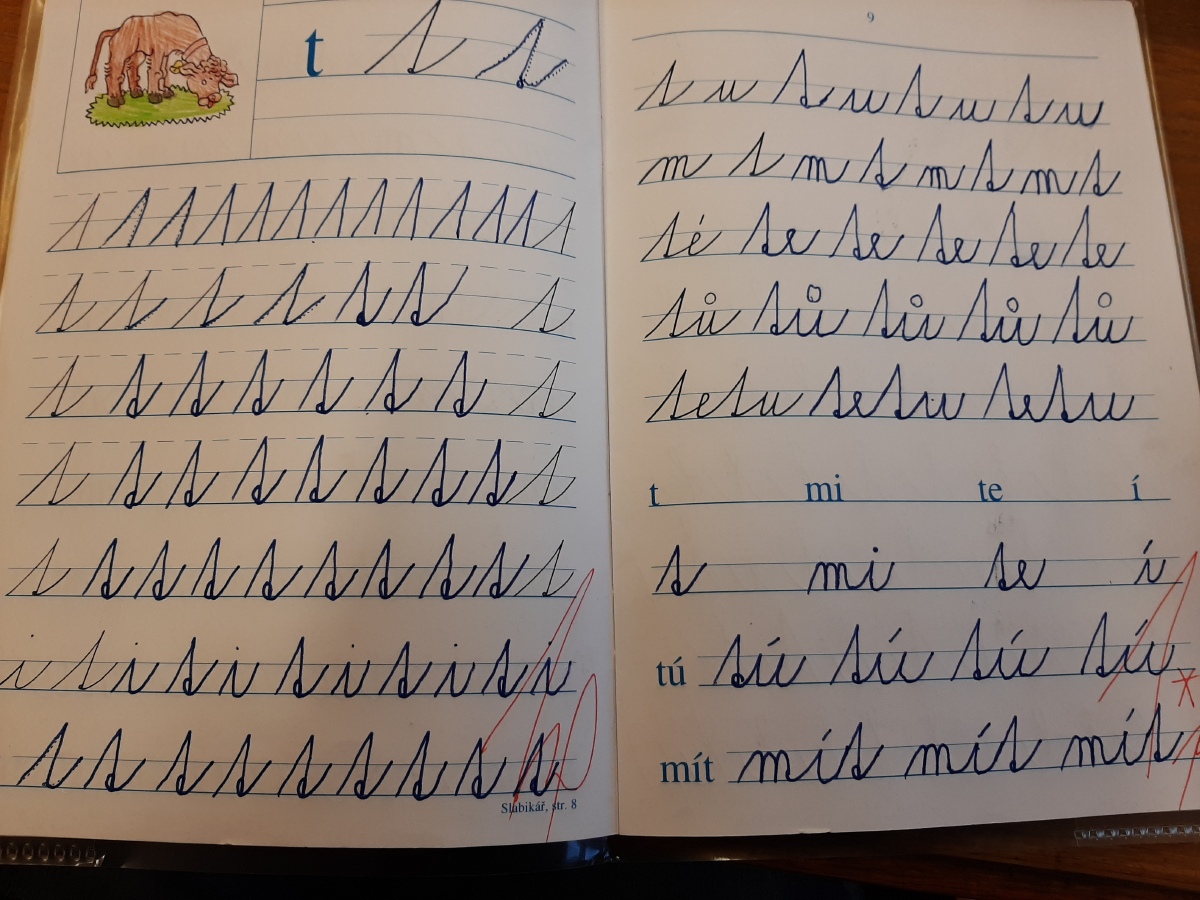 t t t
t t t t t t t
t t t t t t t t
t t t t t t t t t
t t t t t t t t t t
i t i t i t i t i t i
t t t t t t t t t
Slabikář, str. 8
9
t u t u t u t u
m t m t m t m t
té te te te te te
tů tů tů tů tů
tetu tetu tetu
t mi te í
t mi te í
tú tú tú tú tú
mít mít mít mít